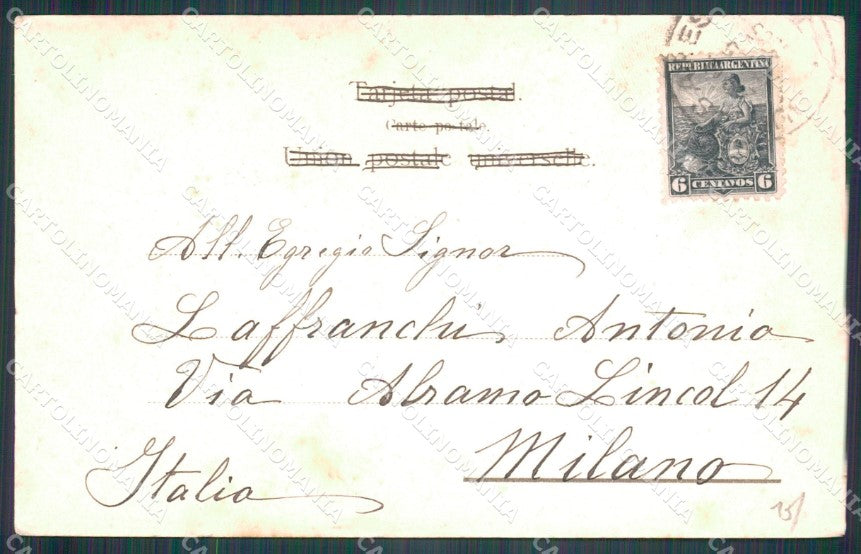 REPUBLICA ARGENTINA
6 CENTAVOS 6
Tarjeta postal.
Carte postale.
Union postale universelle.
All. Egregio Signor
Laffranchi Antonio
Via Abramo Lincol 14
Milano
Italia
CARTOLINOMANIA